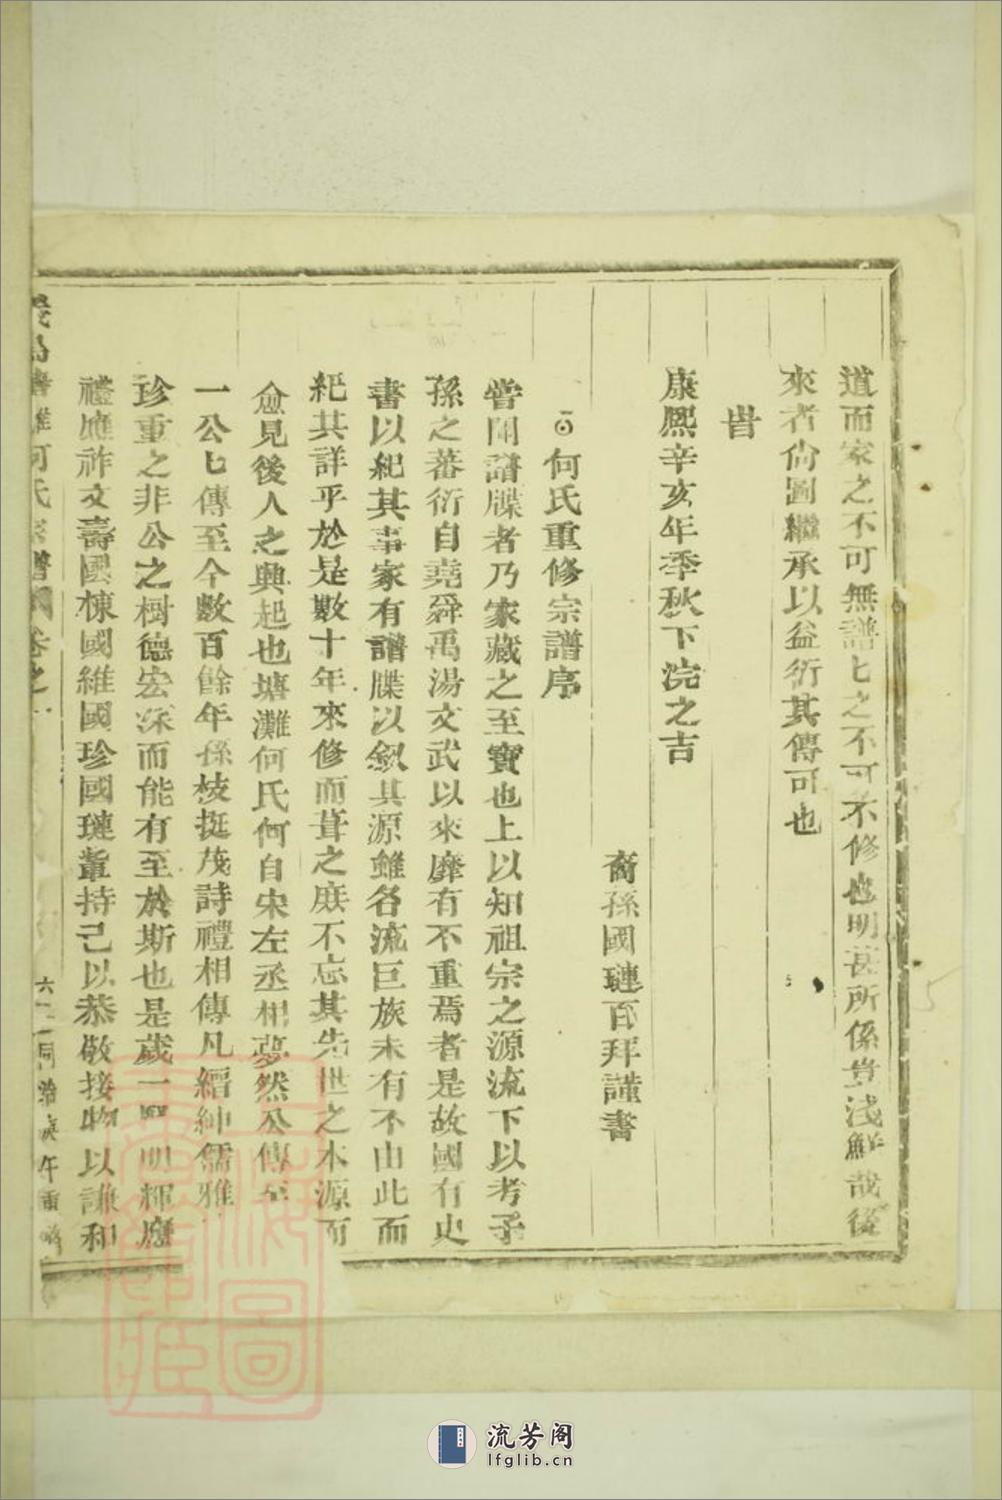 道而家之不可無譜七之不可不修也明甚所係豈淺鮮哉後
來者尙圖繼承以益衍其傳可也
旹
康熙辛亥年季秋下浣之吉
裔孫國璉百拜謹書
何氏重修宗譜序
嘗聞譜牒者乃家藏之至寶也上以知祖宗之源流下以考子
孫之蕃衍自堯舜禹湯文武以來靡有不重焉者是故國有史
書以紀其事家有譜牒以敘其源雖各流巨族未有不由此而
紀其詳乎於是數十年來修而葺之庶不忘其先世之本源而
愈見後人之興起也塘灘何氏何自宋左丞相夢然公傳至
一公七傳至今數百餘年孫枝挺茂詩禮相傳凡縉紳儒雅
珍重之非公之樹德宏深而能有至於斯也是歲一 明輝應
禮應祚文壽國棟國維國珍國璉輩持己以恭敬接物以謙和
何氏宗譜 卷之一
六 同治庚午重修
流芳阁
lfglib.cn